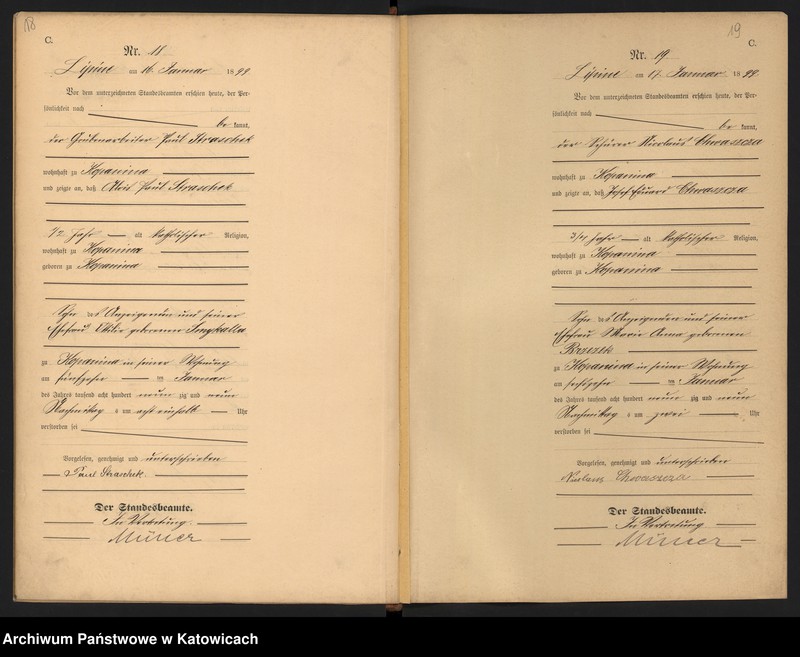 18
C.
Nr. 18
Lipine am 16. Januar 1899
Vor dem unterzeichneten Standesbeamten erschien heute, der Per-
sönlichkeit nach
be kannt,
der Grubenarbeiter Paul Straschek
wohnhaft zu Kopanina
und zeigte an, daß Alois Paul Straschek
1/2 Jahr alt katholischer Religion,
wohnhaft zu Kopanina
geboren zu Kopanina
Sohn des Anzeigenden und seiner
Ehefrau geborenen
zu Kopanina in seiner Wohnung
am fünfzehn ten Januar
des Jahres tausend acht hundert neun zig und neun
Nachmittag s um acht einhalb Uhr
verstorben sei
Vorgelesen, genehmigt und unterschrieben
Paul Straschek.
Der Standesbeamte.
In Vertretung.
Müller
19
C.
Nr. 19
Lipine am 17. Januar 1899.
Vor dem unterzeichneten Standesbeamten erschien heute, der Per-
sönlichkeit nach
be kannt,
der Schürer Nicolaus Chwaszcza
wohnhaft zu Kopanina
und zeigte an, daß Josef Eduard Chwaszcza
3/4 Jahr alt katholischer Religion,
wohnhaft zu Kopanina
geboren zu Kopanina
Sohn des Anzeigenden und seiner
Ehefrau Marie Anna geborenen
Brzezek
zu Kopanina in seiner Wohnung
am sechszehn ten Januar
des Jahres tausend acht hundert neun zig und neun
Nachmittag s um zwei Uhr
verstorben sei
Vorgelesen, genehmigt und unterschrieben
Nicolaus Chwaszcza
Der Standesbeamte.
In Vertretung
Müller
Archiwum Państwowe w Katowicach